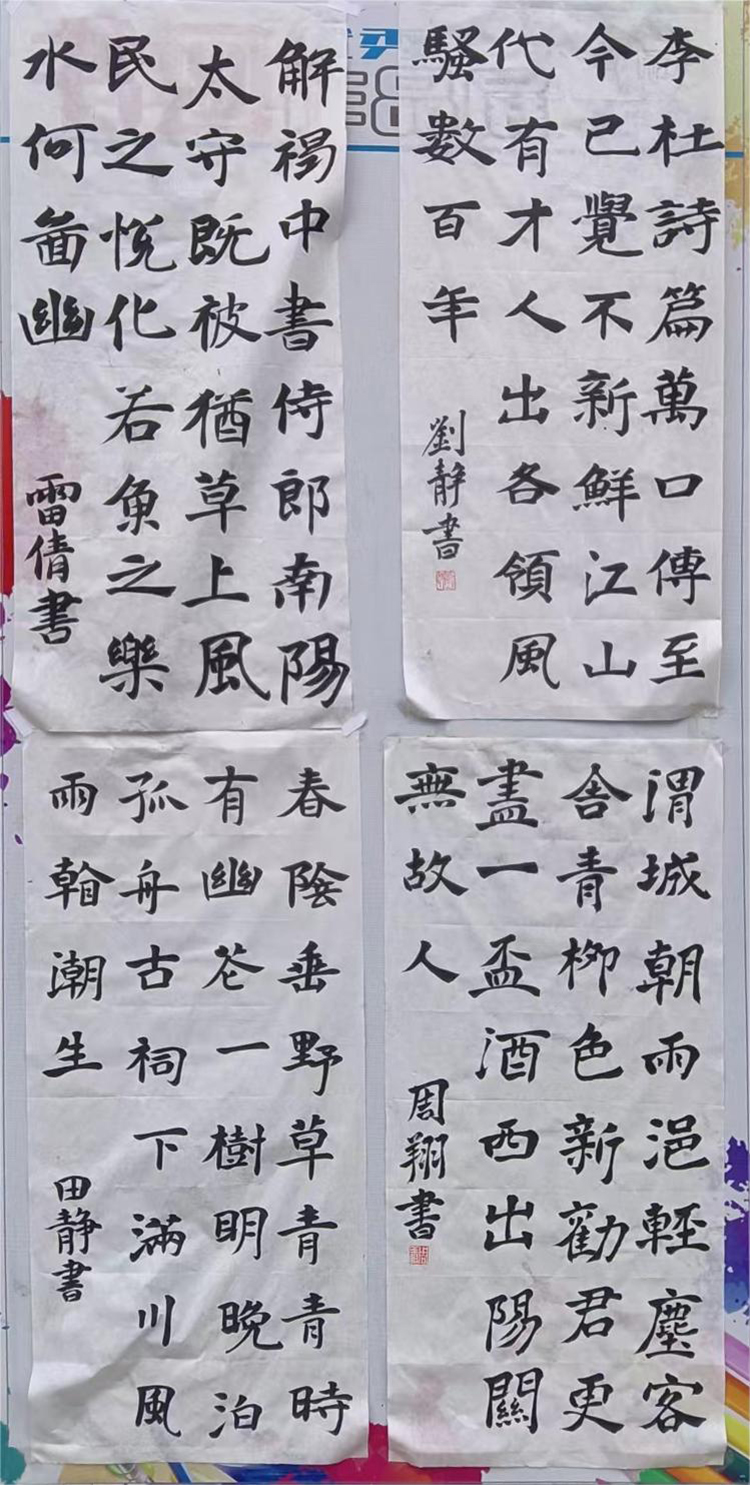 李杜詩篇萬口傳至
今已覺不新鮮江山
代有才人出各領風
騷數百年
劉靜書
解褐中書侍郎南陽
太守既被猶草上風
民之悅化若魚之樂
水何啚幽
雷倩書
渭城朝雨浥輕塵客
舍青柳色新勸君更
盡一盃酒西出陽關
無故人
周翔書
春陰垂野草青青時
有幽花一樹明晚泊
孤舟古祠下滿川風
雨看潮生
田靜書